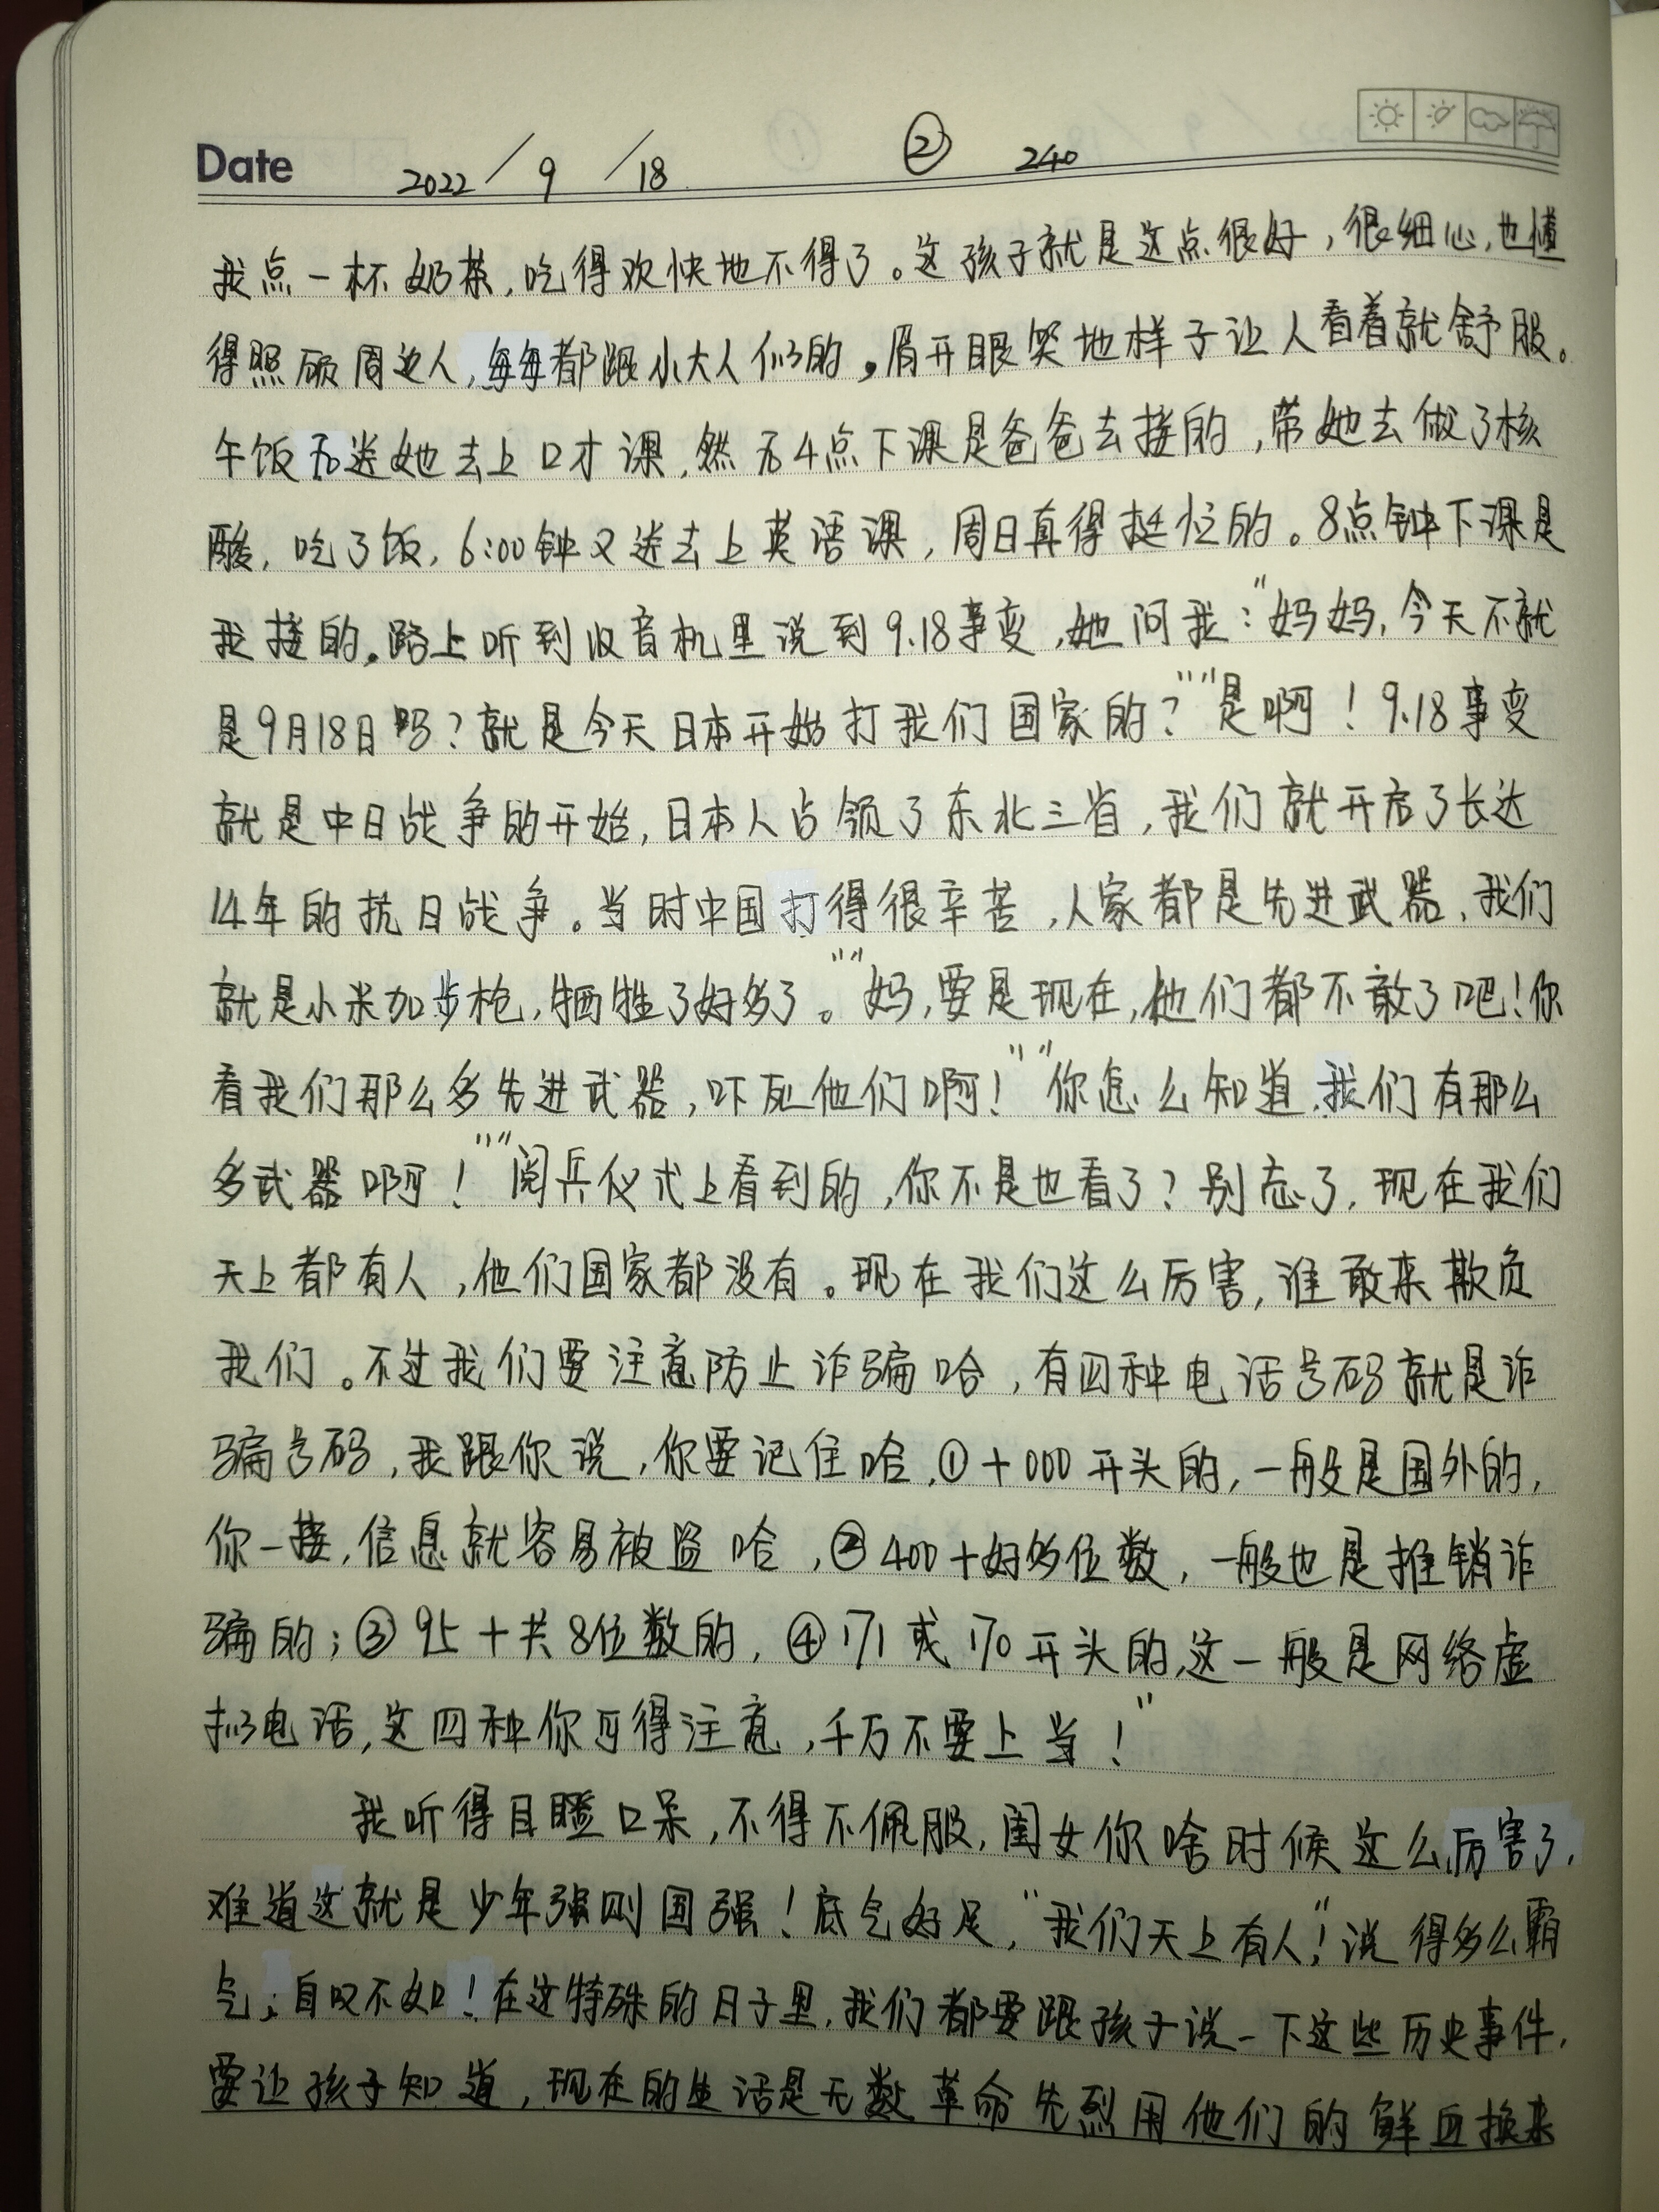 Date 2022/9/18 ② 240
我点一杯奶茶,吃得欢快地不得了。这孩子就是这点很好,很细心,也懂
得照顾周边人,每每都跟小大人似的,眉开眼笑地样子让人看着就舒服。
午饭后送她去上口才课,然后4点下课是爸爸去接的,带她去做了核
酸,吃了饭,6:00钟又送去上英语课,周日真得挺忙的。8点钟下课是
我接的,路上听到收音机里说到9.18事变,她问我:“妈妈,今天不就
是9月18日吗?就是今天日本开始打我们国家的?”“是啊!9.18事变
就是中日战争的开始,日本人占领了东北三省,我们就开启了长达
14年的抗日战争。当时中国打得很辛苦,人家都是先进武器,我们
就是小米加步枪,牺牲了好多了。”“妈,要是现在,他们都不敢了吧!你
看我们那么多先进武器,吓死他们啊!”“你怎么知道我们有那么
多武器啊!”“阅兵仪式上看到的,你不是也看了?别忘了,现在我们
天上都有人,他们国家都没有。现在我们这么厉害,谁敢来欺负
我们。不过我们要注意防止诈骗哈,有四种电话号码就是诈
骗号码,我跟你说,你要记住哈,①+000开头的,一般是国外的,
你一接,信息就容易被盗哈,②400+好多位数,一般也是推销诈
骗的;③95+共8位数的,④171或170开头的,这一般是网络虚
拟电话,这四种你可得注意,千万不要上当!”
我听得目瞪口呆,不得不佩服,闺女你啥时候这么厉害了,
难道这就是少年强则国强!底气好足,“我们天上有人!”说得多么霸
气,自叹不如!在这特殊的日子里,我们都要跟孩子说一下这些历史事件,
要让孩子知道,现在的生活是无数革命先烈用他们的鲜血换来